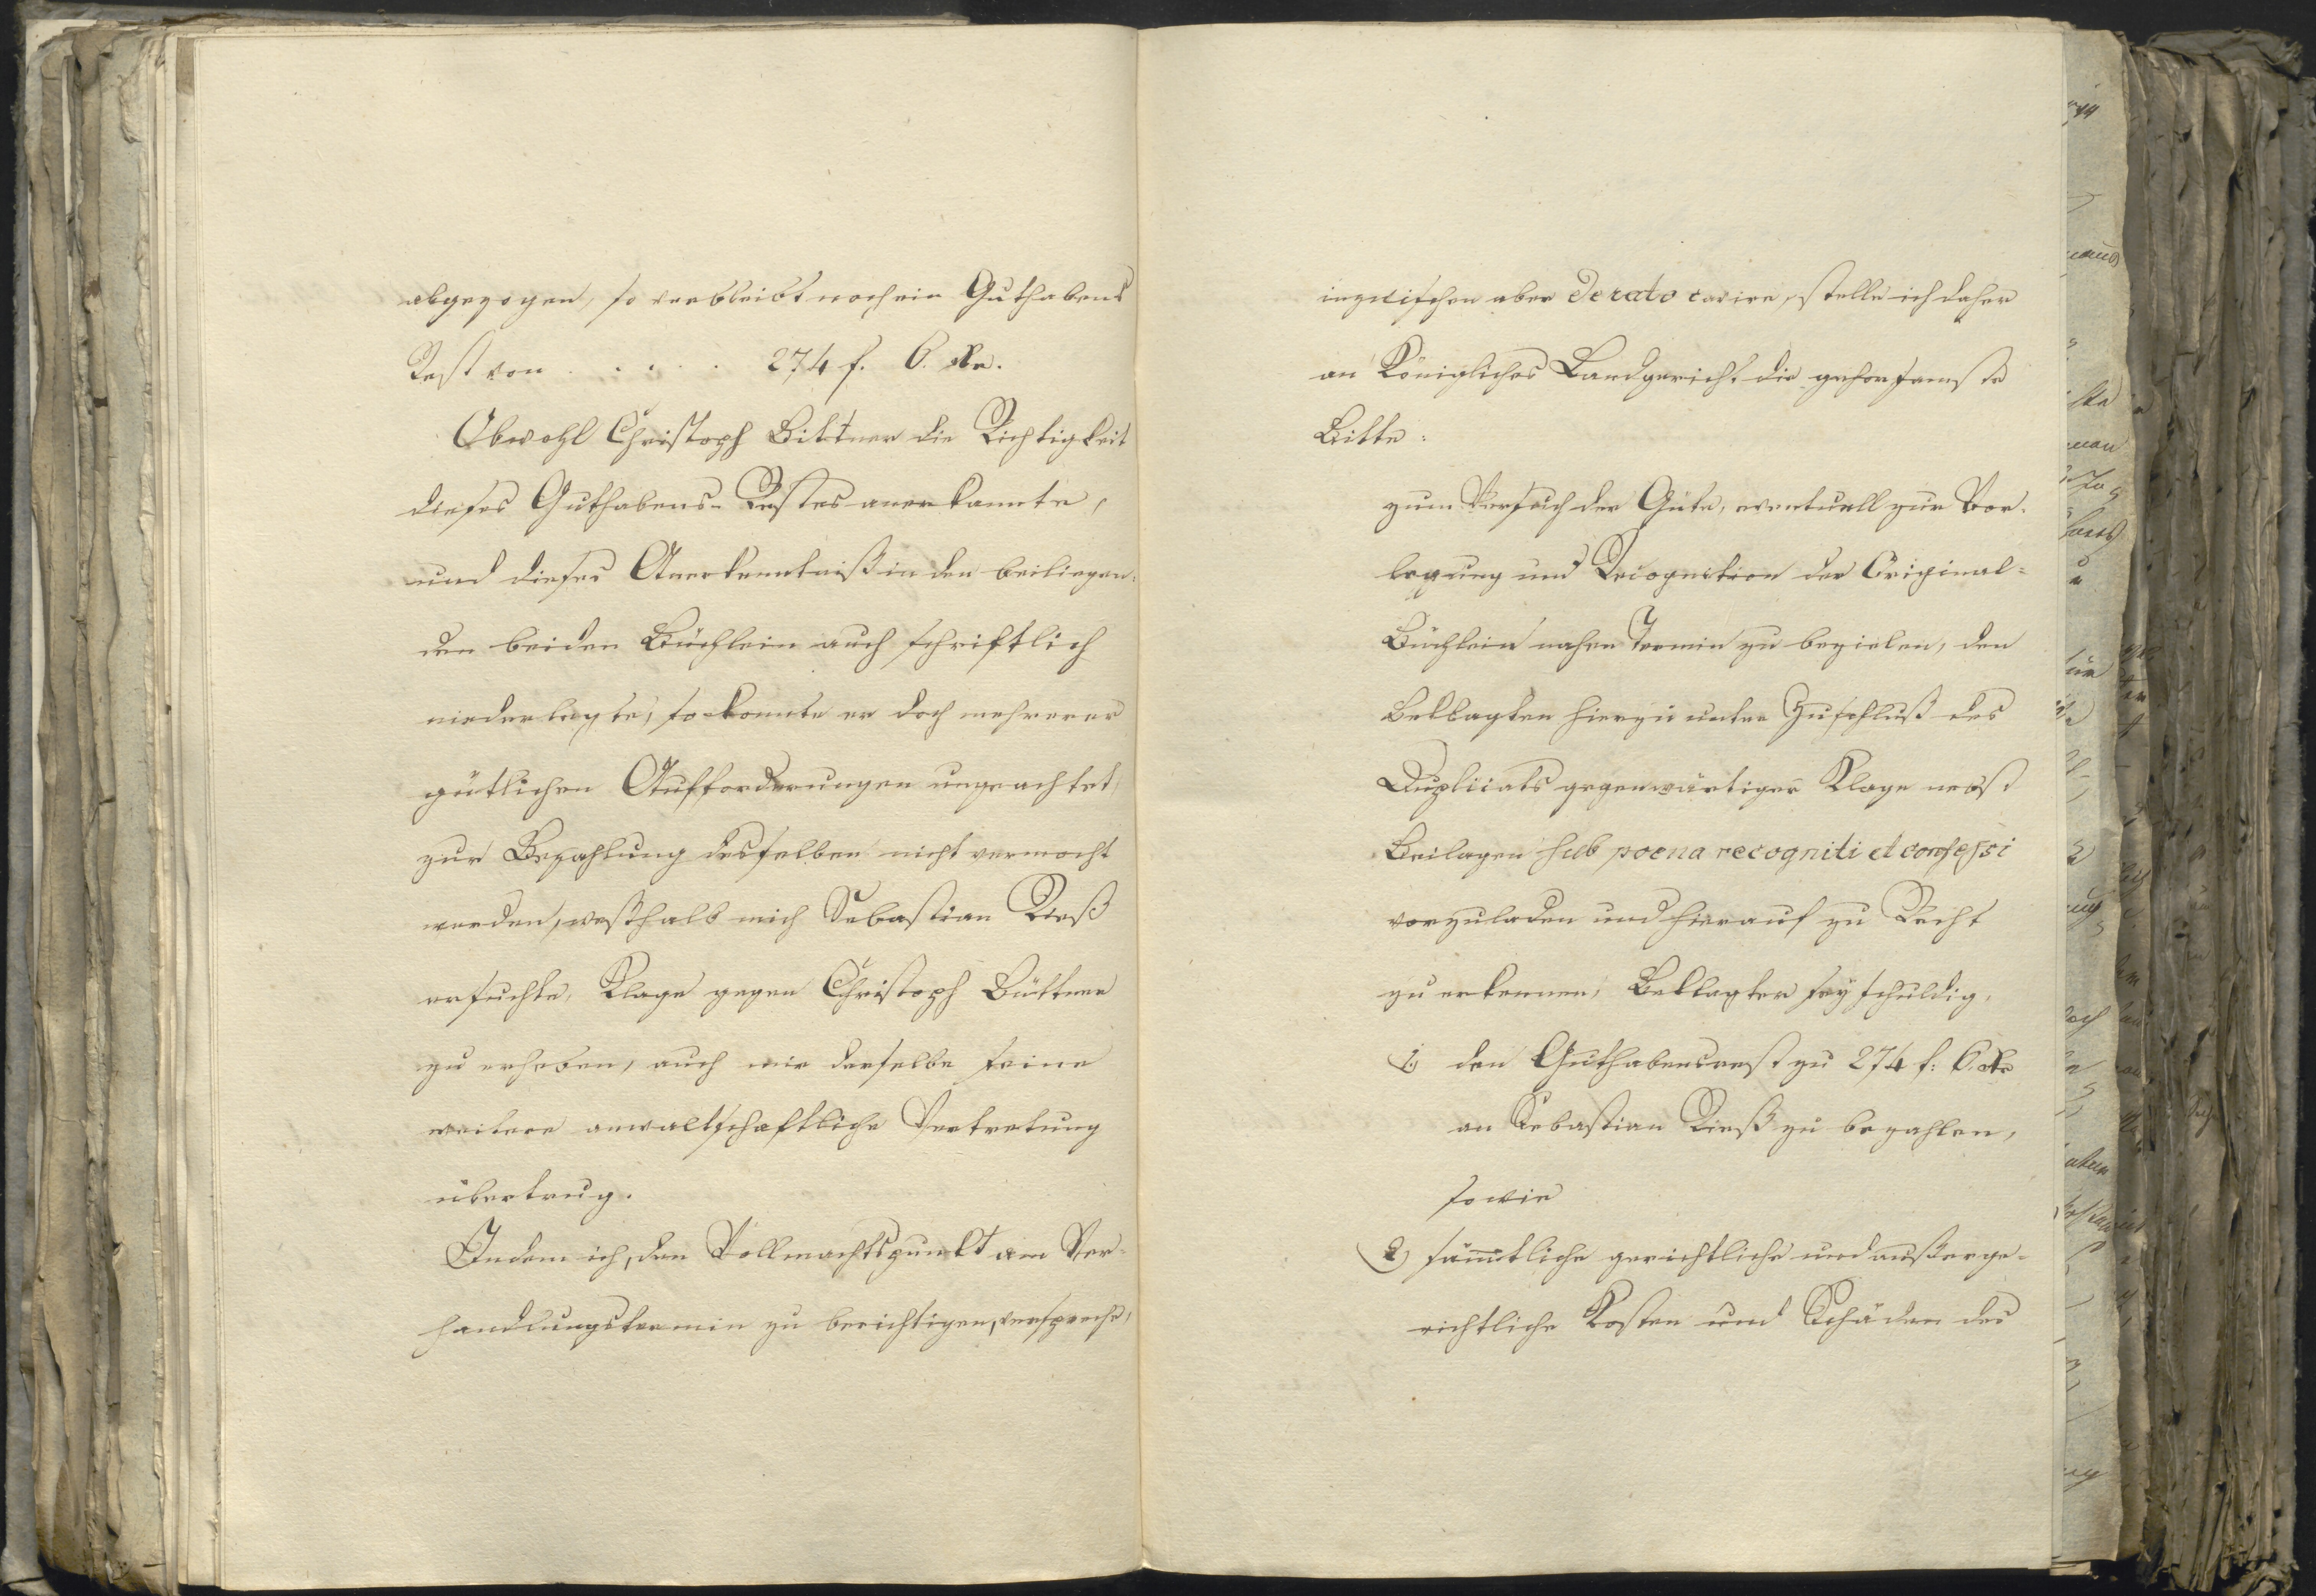 abgezogen, so verbleibt noch ein Guthabens
Rest von . . . . . 274 f. 6. Kr.
Obwohl Christoph Bittner die Richtigkeit
dieses Guthabens-Restes anerkannte,
und dieses Anerkenntniß in den beiliegen-
den beiden Büchlein auch schriftlich
niederlegte, so konnte er doch mehrerer
gütlichen Aufforderungen ungeachtet,
zur Bezahlung desselben nicht vermocht
werden, weßhalb mich Sebastian Rieß
ersuchte, Klage gegen Christoph Büttner
zu erheben, auch mir derselbe seine
weitere anwaltschaftliche Vertretung
übertrug.
Indem ich, den Vollmachtspunkt am Ver-
handlungstermin zu berichtigen, verspreche,
inzwischen aber de rato cavire, stelle ich daher
an Königliches Landgericht die gehorsamste
Bitte:
zum Versuch der Güte, eventuell zur Vor-
legung und Recognition der Original-
Büchlein nahen Termin zu bezielen, den
Beklagten hierzu unter Zuschluß des
Duplicats gegenwärtiger Klage nebst
Beilagen sub poena recogniti et confessi
vorzuladen und hierauf zu Recht
zu erkennen, Beklagter sey schuldig,
1.) den Guthabensrest zu 274 f: 6. Kr
an Sebastian Rieß zu bezahlen,
sowie
2) sämmtliche gerichtliche und außerge-
richtliche Kosten und Schäden des